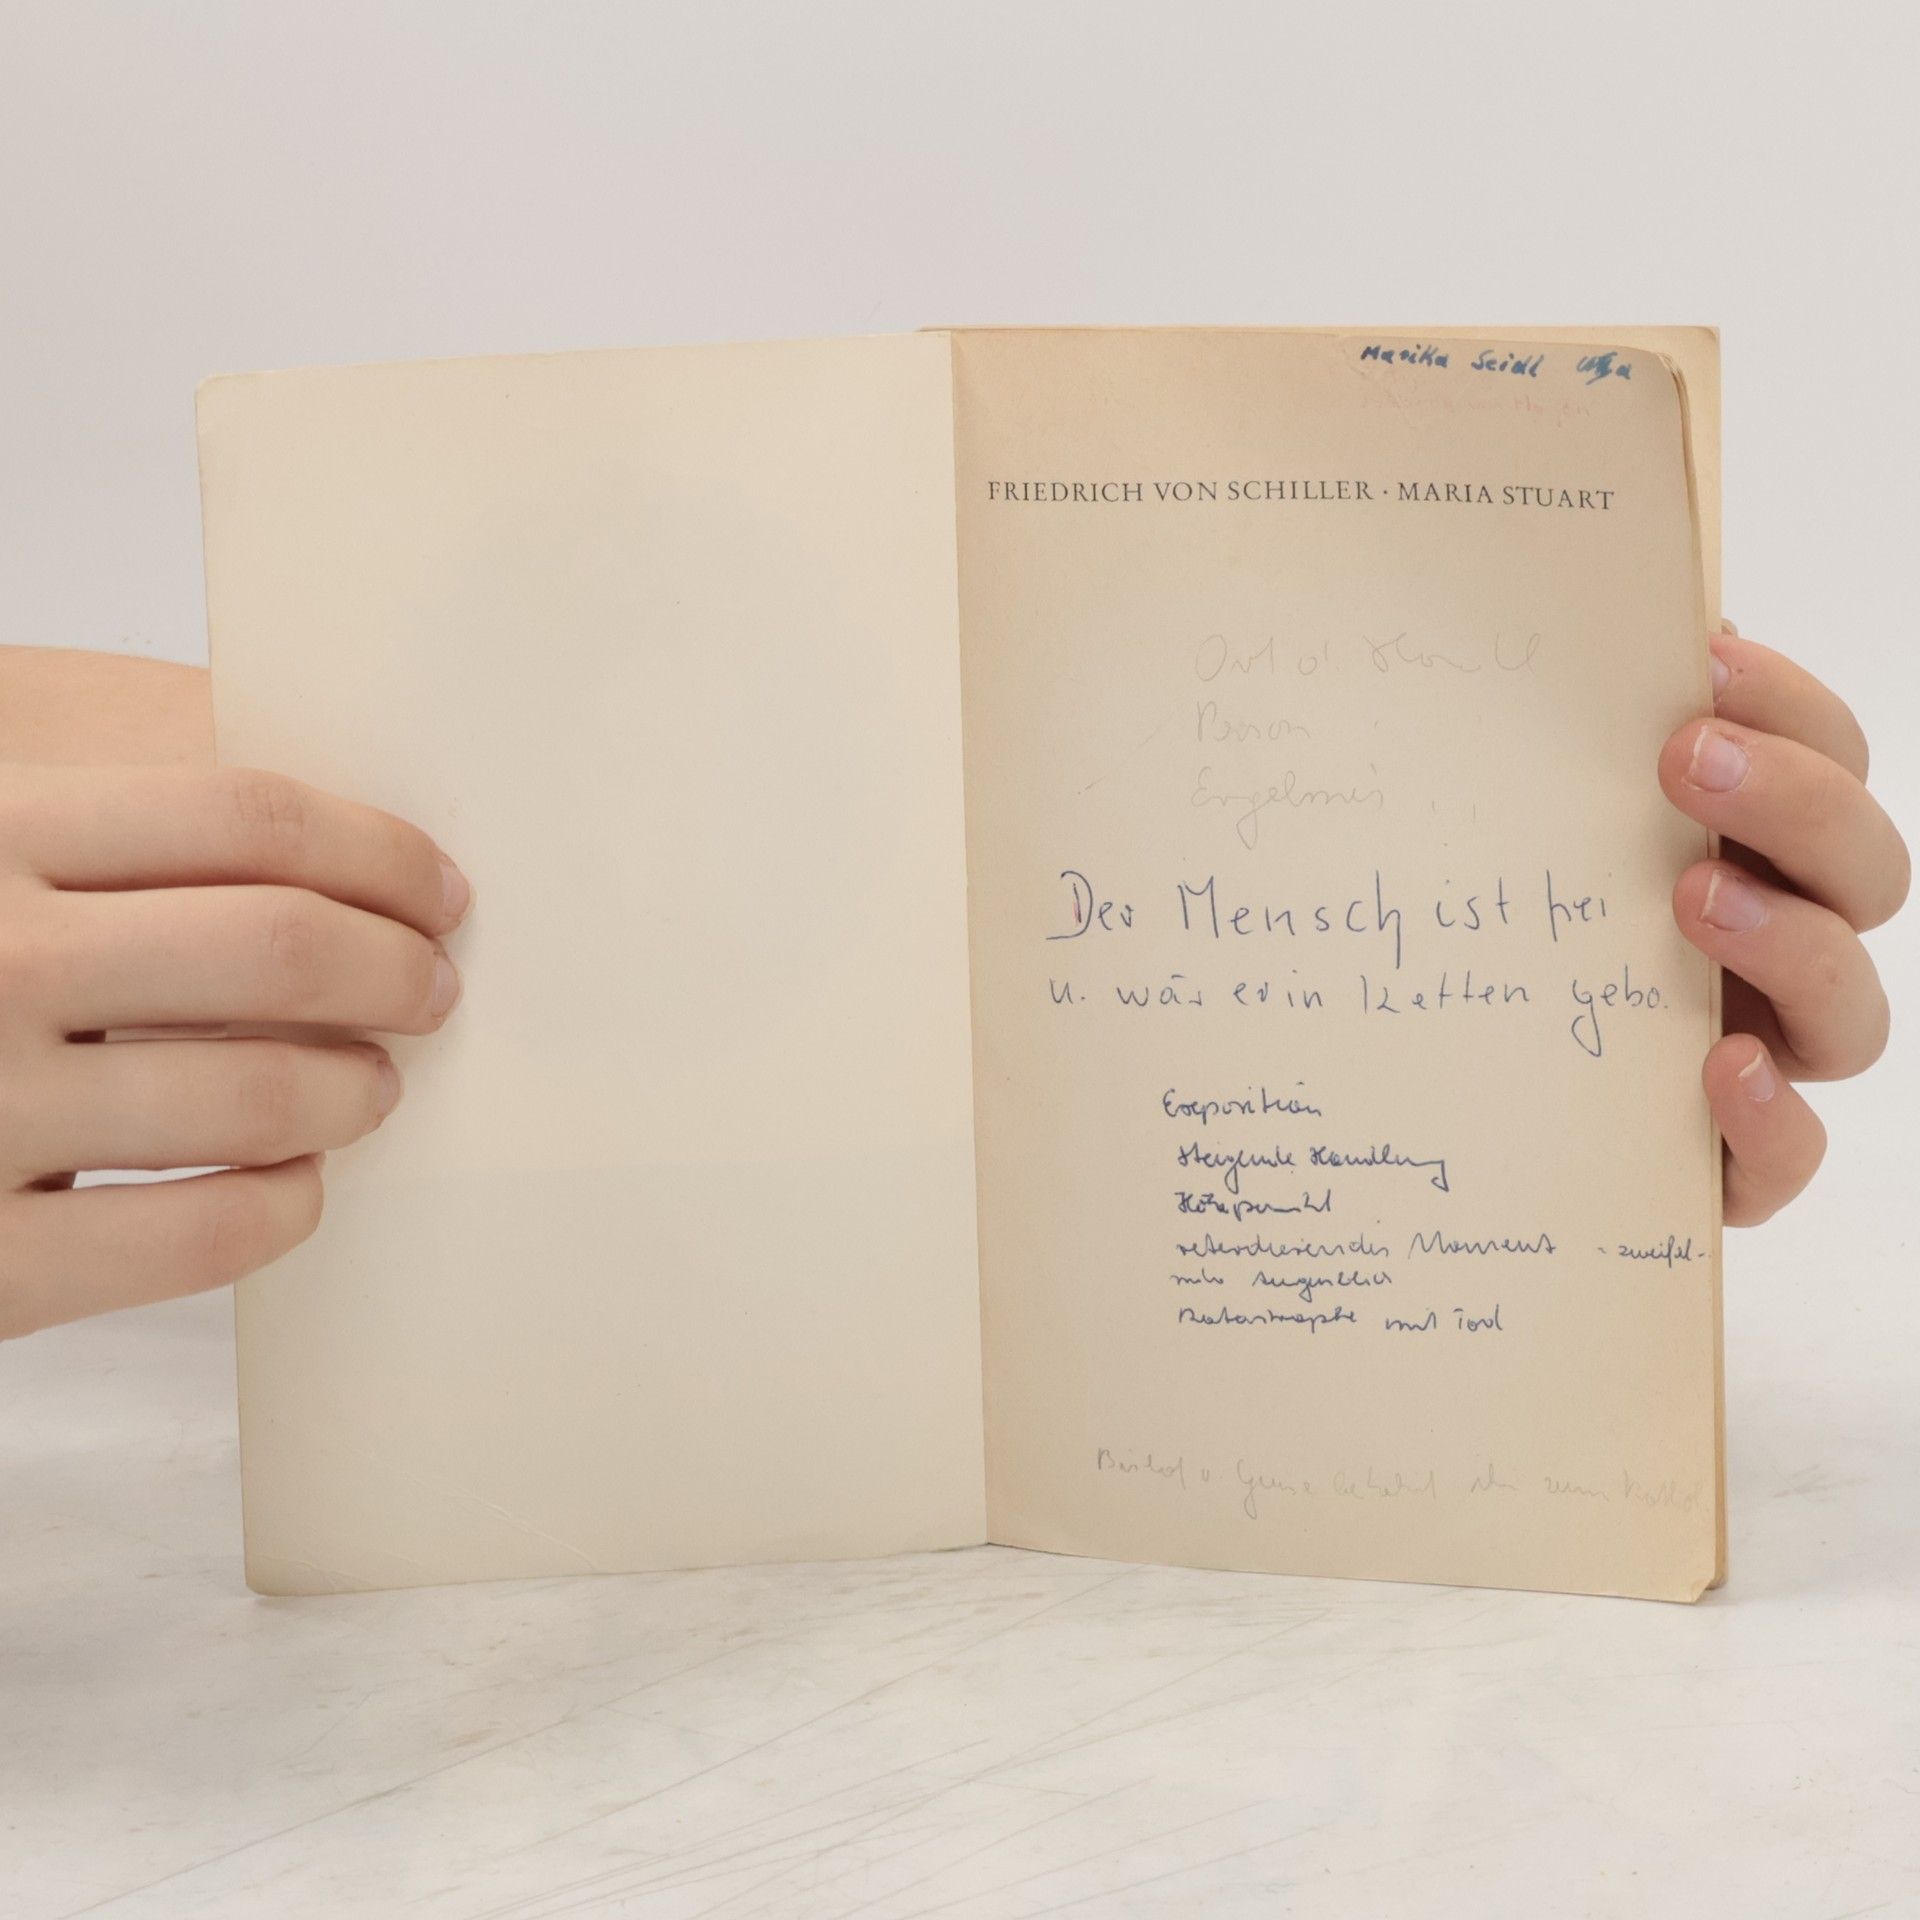 Marika Seidl
FRIEDRICH VON SCHILLER · MARIA STUART
Ort d. Handl
Person
Der Mensch ist frei
u. wär er in Ketten gebo.
Exposition
steigende Handlung
Höhepunkt
retardierendes Moment - zweifel-
Augenblick
Katastrophe mit Tod
Bischof v. Guise bekehrt ihn zum Kathol.